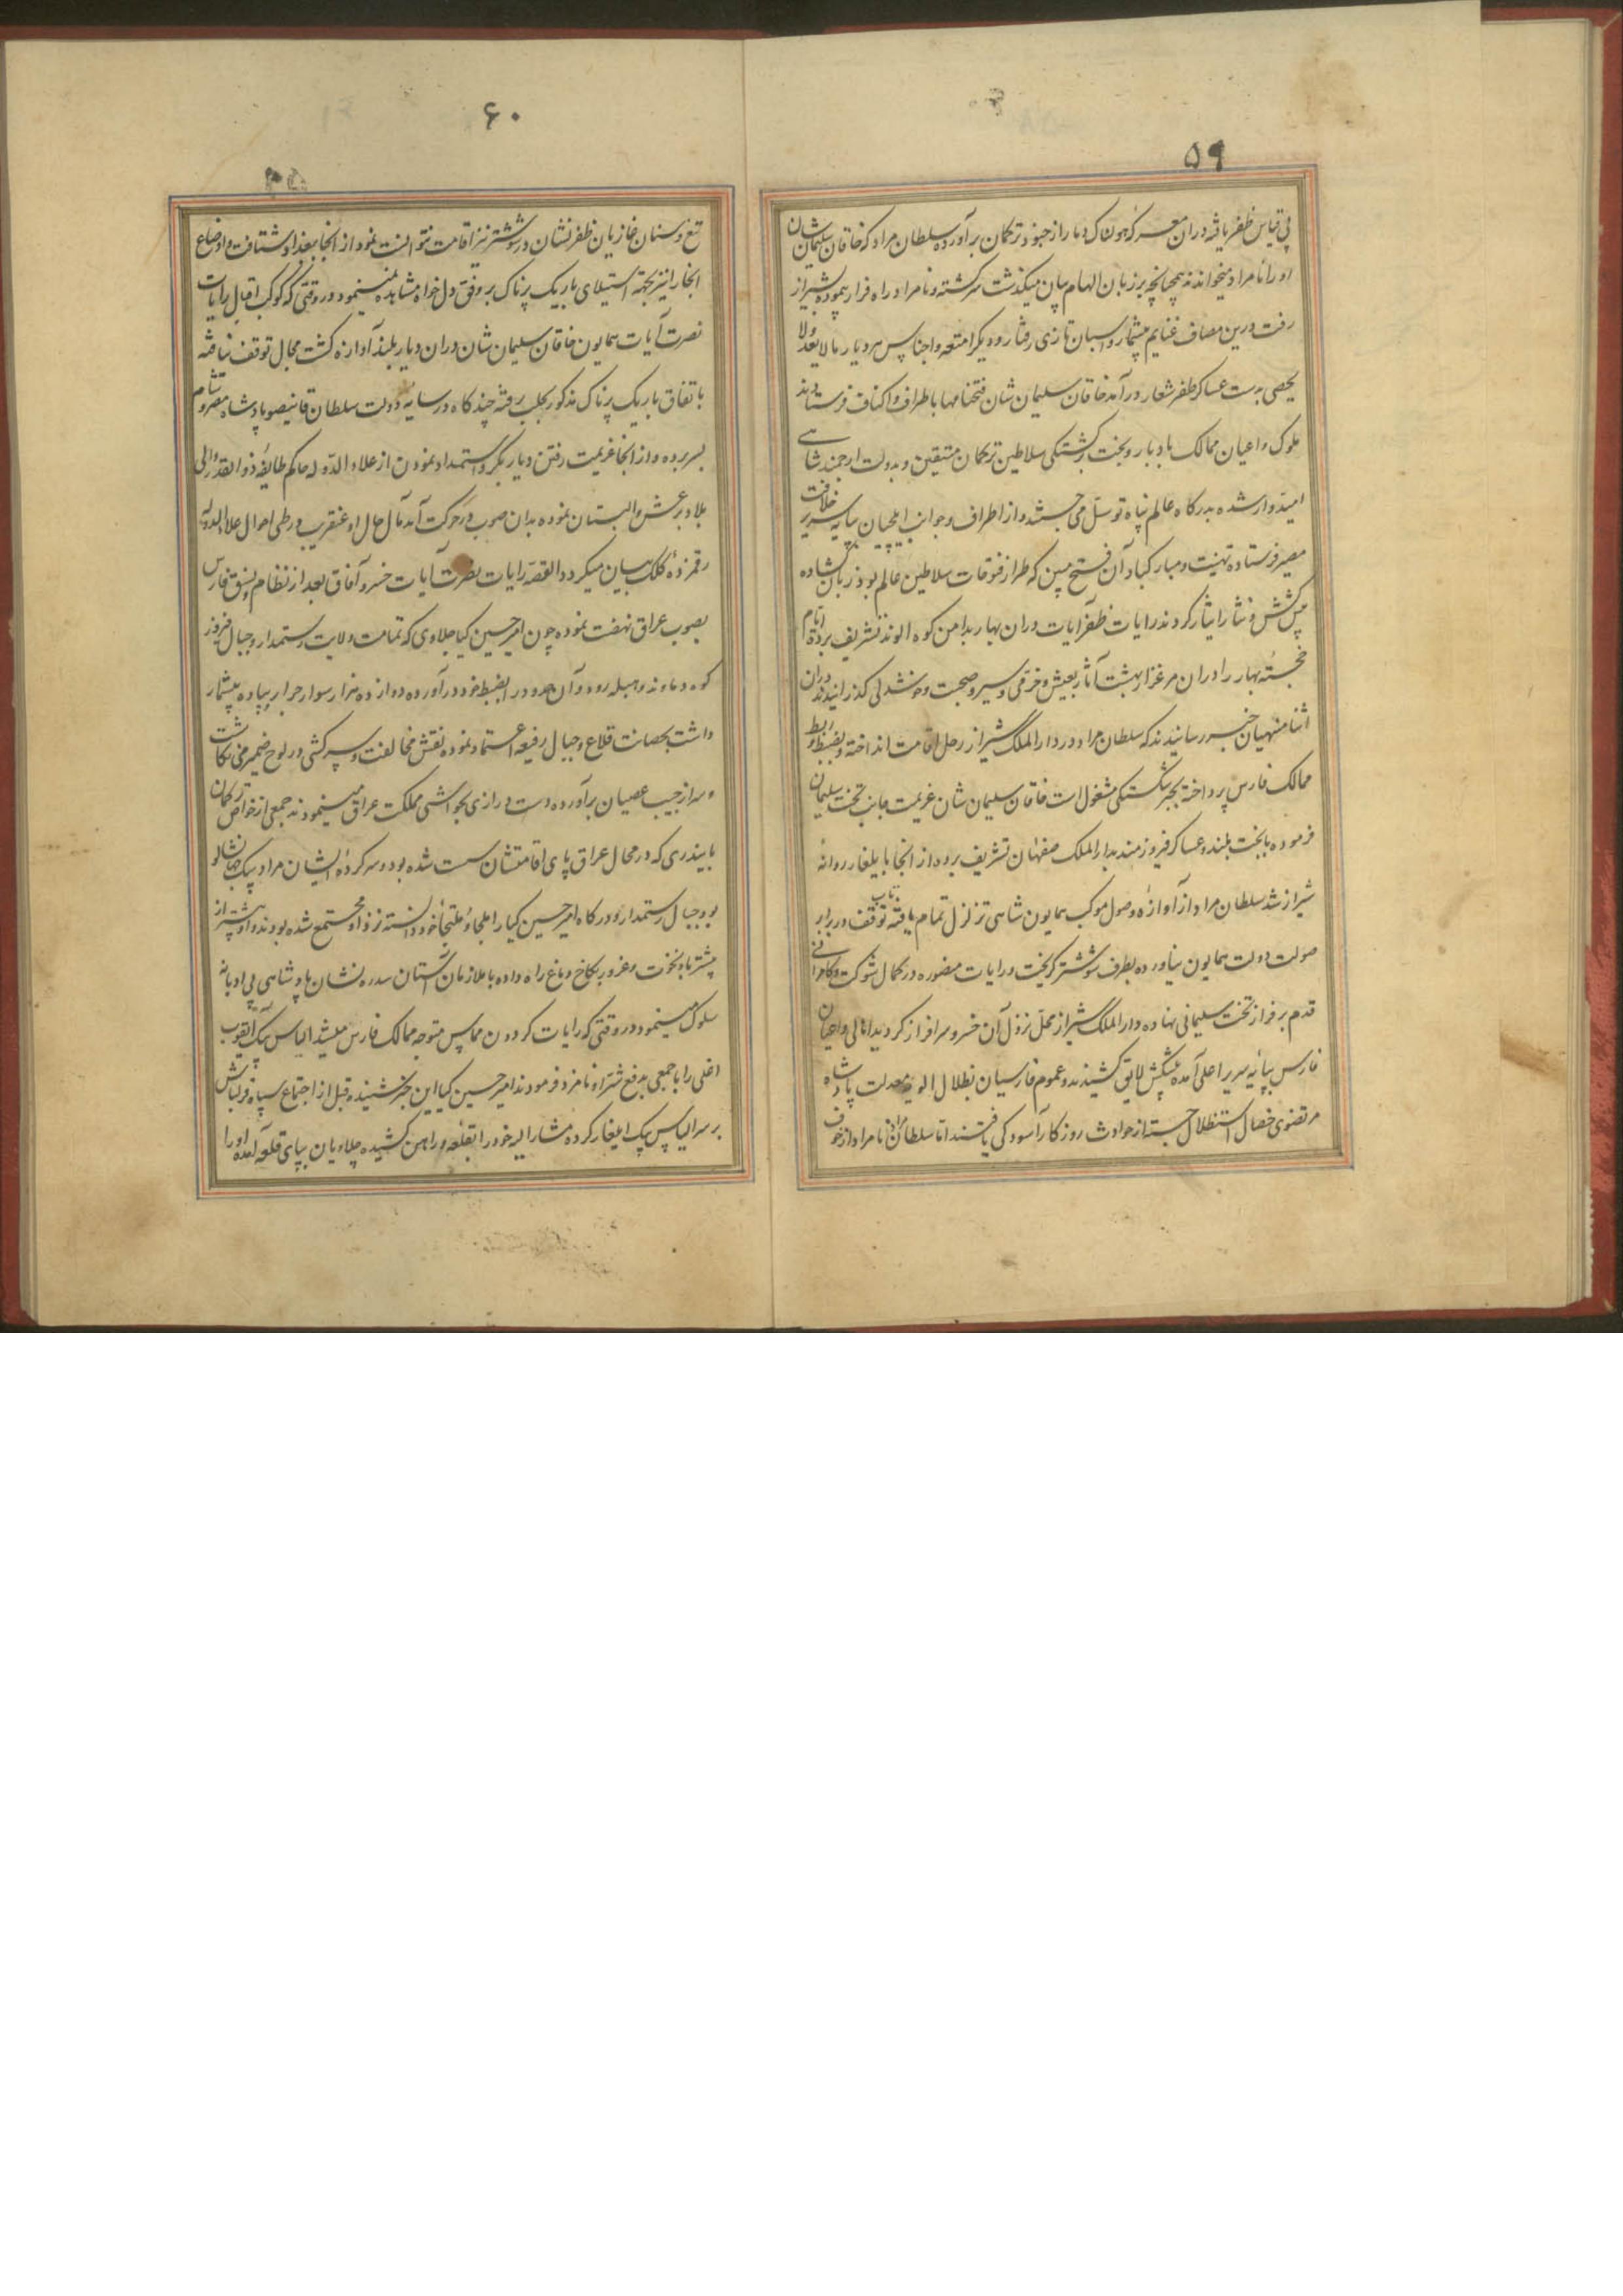 ۵۹
بی قیاس ظفر یافته دران معرکه هولناک دمار از جنود ترکمان برآورده سلطان مراد که خاقان سلیمان شان
او را نامراد میخواندند همچنانچه بر زبان الهام بیان میگذشت سرگشته و نامراد راه فرار پیموده بشیراز
رفت درین مصاف غنایم بیشمار و اسبان تازی رفتار و دیگر امتعه و اجناس هر دیار مالا یعد ولا
یحصی بدست عساکر ظفر شعار درآمد خاقان سلیمان شان فتحنامها باطراف و اکناف فرستادند
ملوک و اعیان ممالک بادبار و بخت برگشتگی سلاطین ترکمان متیقین و بدولت ارجمند شاهی
امیدوار شده بدرگاه عالم پناه توسل می جستند و از اطراف و جوانب ایلچیان بپایه سریر خلافت
مصیر فرستاده تهنیت و مبارکباد آن فتح مبین که طراز فتوحات سلاطین عالم بود زبان گشاده
پیش کش و نثار ایثار کردند رایات ظفر آیات دران بهار بدامن کوه الوند تشریف برده ایام
خجسته بهار را دران مرغزار بهشت آثار بعیش و خرمی و سیر و صحبت و خوشدلی گذرانیدند دران
اثنا منهیان خبر رسانیدند که سلطان مراد در دار الملک شیراز رحل اقامت انداخته و بضبط و ربط
ممالک فارس پرداخته بجبر شکستگی مشغول است خاقان سلیمان شان عزیمت جانب تخت سلیمان
فرموده با بخت بلند و عساکر فیروزمند بدار الملک صفهان تشریف برده از انجا بایلغار روانهٔ
شیراز شد سلطان مراد از آوازهٔ وصول موکب همایون شاهی تزلزل تمام یافته تاب توقف در برابر
صولت دولت همایون نیاورده بطرف شوشتر گریخت و رایات منصوره در کمال شوکت و کامرانی
قدم بر فراز تخت سلیمانی نهاده دار الملک شیراز محل نزول آن خسرو سرافراز گردید اهالی و اعیان
فارس بپایه سریر اعلی آمده پیشکش لایق کشیدند و عموم فارسیان بظلال الویه معدلت پادشاه
مرتضوی خصال استظلال جسته از حوادث روزگار آسودگی یافتند اما سلطان مراد نامراد از خوف
۶۰
تیغ و سنان غازیان ظفر نشان در شوشتر نیز اقامت نتوانست نمود از انجا ببغداد شتافت و اوضاع
انجا را نیز بجهة استیلای باریک پرناک بر وفق دل خواه مشاهده نمینمود در وقتی که کوکب اقبال رایات
نصرت آیات همایون خاقان سلیمان شان دران دیار بلند آوازه گشت مجال توقف نیافته
باتفاق باریک پرناک مذکور بحلب رفته چند گاه در سایه دولت سلطان قانیصو پادشاه مصر و شام
بسر برده و از انجا عزیمت رفتن دیار بکر و استمداد نمودن از علاء الدوله حاکم طایفه ذو القدر والی
بلاد مرعش و البستان نموده بدان صوب در حرکت آمد مآل حال او عنقریب در طی احوال علاء الدوله
رقمزدهٔ کلک بیان میگردد القصه رایات نصرت آیات خسرو آفاق بعد از نظام و نسق فارس
بصوب عراق نهضت نموده چون امیر حسین کیا چلاوی که تمامت ولایت رستمدار و جبال فیروز
کوه و دماوند و هبله رود و آن حدود را بضبط خود درآورده دوازده هزار سوار جرار و پیاده بیشمار
داشت بحصانت قلاع و جبال رفیعه اعتماد نموده نقش مخالفت و سرکشی در لوح ضمیر می نگاشت
و سر از جیب عصیان برآورده دست درازی بحواشی مملکت عراق مینمودند جمعی از خواص ترکمان
بایندری که در محال عراق پای اقامتشان سست شده بود و سرکردهٔ ایشان مراد بیک جهانشالو
بود جبال رستمدار و درگاه امیر حسین کیا را ملجا و ملتجاء خود دانسته نزد او مجتمع شده بودند و او بیشتر از
پیشتر باد نخوت و غرور بکاخ دماغ راه داده با ملازمان آستان سدره نشان پادشاهی بی ادبانه
سلوک مینمود در وقتی که رایات گردون مماس متوجه ممالک فارس میشد الیاس بیک ایقوب
اغلی را با جمعی بدفع شر او نامزد فرمودند امیر حسین کیا این خبر شنیده قبل از اجتماع سپاه قزلباش
بر سر الیاس بیک ایلغار کرده مشار الیه خود را بقلعه ورامین کشیده چلاویان بپای قلعه آمده او را